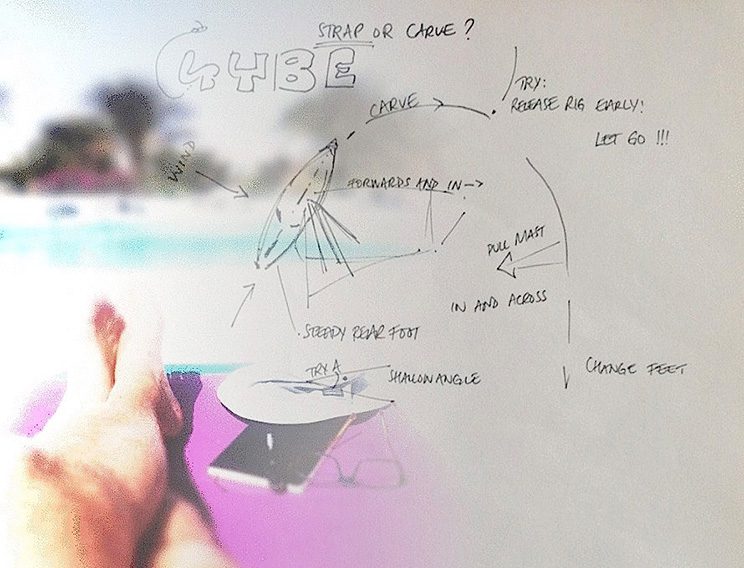 STRAP OR CARVE?
GYBE
TRY:
RELEASE RIG EARLY!
LET GO!!!
CARVE
WIND
FORWARDS AND IN
PULL MAST
IN AND ACROSS
STEADY REAR FOOT
TRY A
SHALLOW ANGLE
CHANGE FEET